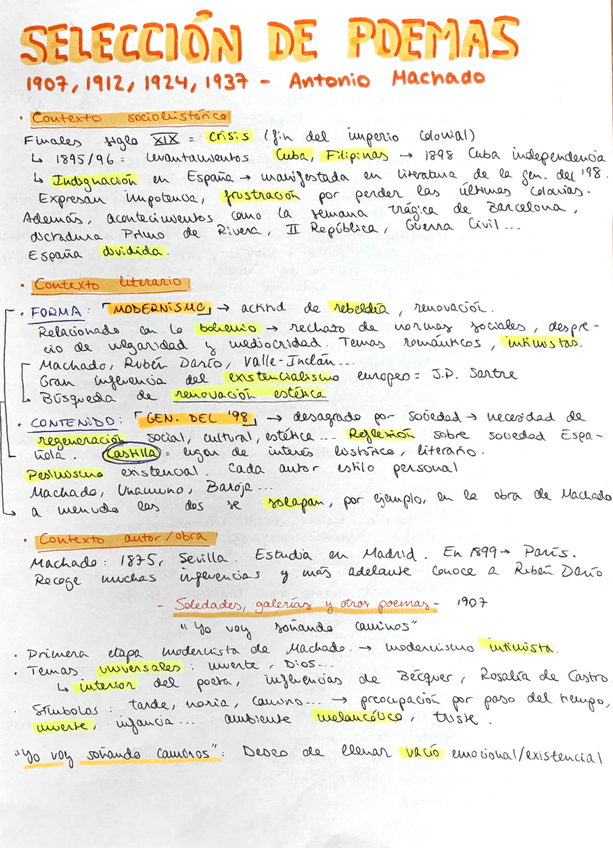 SELECCIÓN DE POEMAS
1907, 1912, 1924, 1937 - Antonio Machado
· Contexto sociohistórico
Finales siglo XIX = crisis (fin del imperio colonial)
↳ 1895/96 = levantamientos Cuba, Filipinas → 1898 Cuba independencia
↳ Indignación en España → manifestada en literatura de la gen. del '98.
Expresan impotencia, frustración por perder las últimas colonias.
Además, acontecimientos como la semana trágica de Barcelona,
dictadura Primo de Rivera, II República, Guerra Civil ...
España dividida.
· Contexto literario
· FORMA: "MODERNISMO" → actitud de rebeldía, renovación.
Relacionado en lo bohemio → rechazo de normas sociales, despre-
cio de vulgaridad y mediocridad. Temas románticos, intimistas.
Machado, Rubén Darío, Valle-Inclán...
Gran influencia del existencialismo europeo = J.P. Sartre
↳ Búsqueda de renovación estética
· CONTENIDO: "GEN. DEL '98" → desagrado por sociedad → necesidad de
regeneración social, cultural, estética... Reflexión sobre sociedad Espa-
ñola. Castilla = lugar de interés histórico, literario.
Pesimismo existencial. Cada autor estilo personal
Machado, Unamuno, Baroja...
→ a menudo las dos se solapan, por ejemplo, en la obra de Machado
· Contexto autor/obra
Machado: 1875, Sevilla. Estudia en Madrid. En 1899 → París.
Recoge muchas influencias y más adelante conoce a Rubén Darío
- Soledades, galerías y otros poemas - 1907
"Yo voy soñando caminos"
· Primera etapa modernista de Machado. → modernismo intimista.
· Temas universales: muerte, Dios...
↳ interior del poeta, influencias de Bécquer, Rosalía de Castro.
· Símbolos: tarde, noria, camino... → preocupación por paso del tiempo,
muerte, infancia... ambiente melancólico, triste.
"Yo voy soñando caminos": Deseo de llenar vacío emocional/existencial